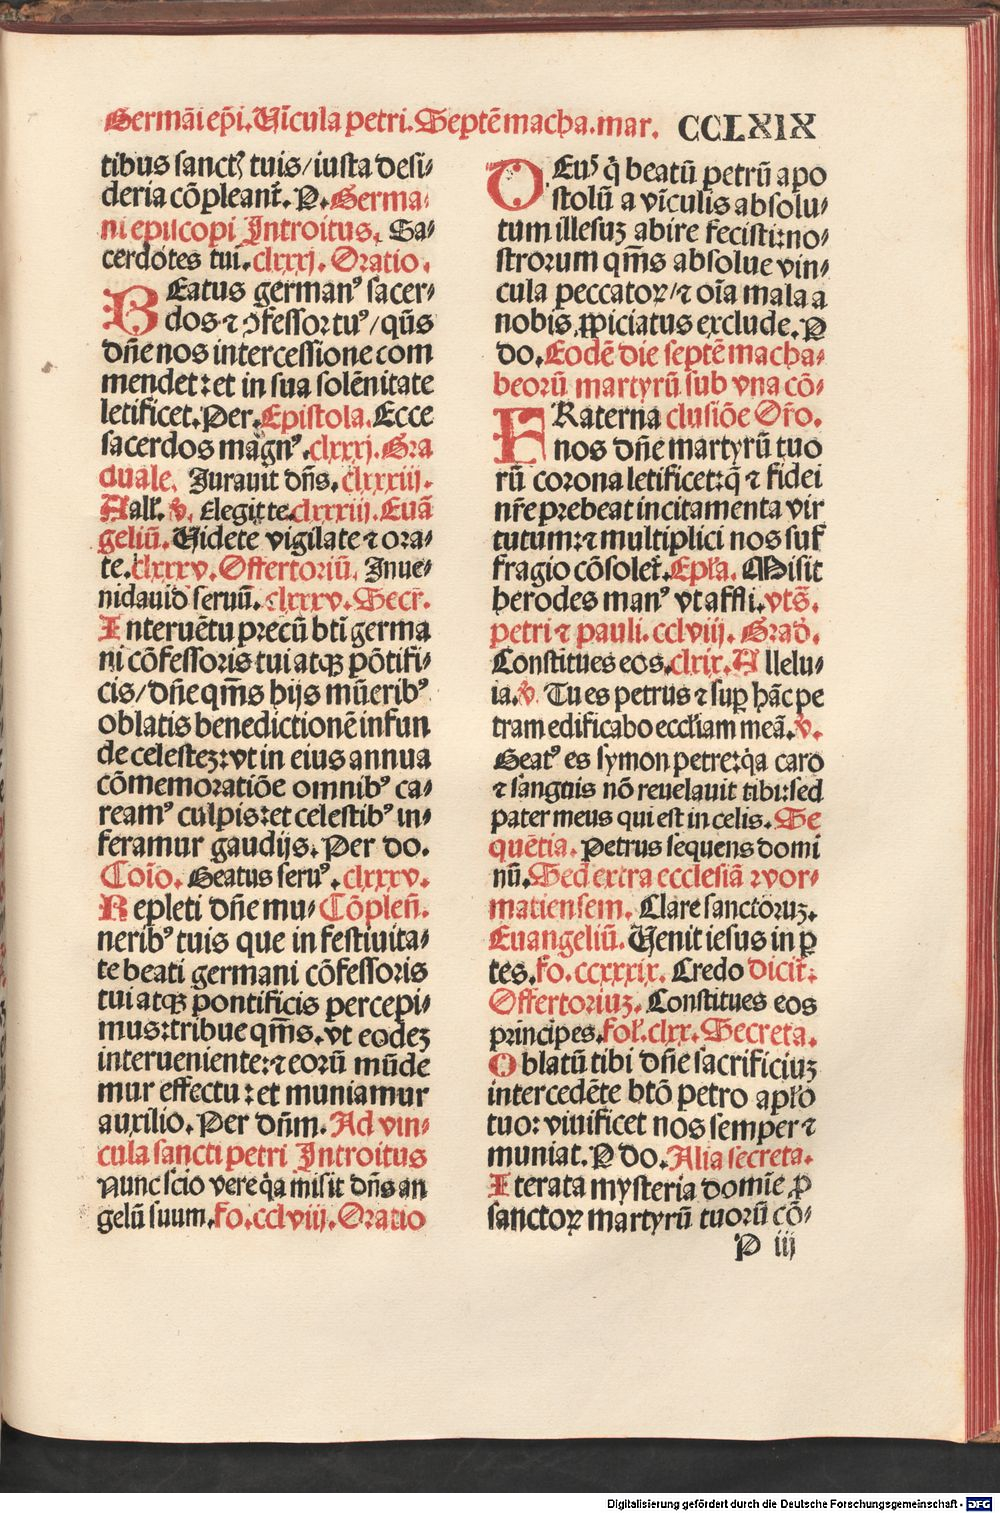 Germāi ep̄i. Vīcula petri. Septē macha. mar. CCLXIX
tibus sanctꝭ tuis/iusta desi⸗
deria cōpleant᷑. P. Germa⸗
ni episcopi Introitus. Sa⸗
cerdotes tui. clxxxj. Oratio.
BEatus germanꝰ sacer⸗
dos ⁊ ꝯfessor tuꝰ/ qūs
dn̄e nos intercessione com
mendet: et in sua solēnitate
letificet. Per. Epistola. Ecce
sacerdos magnꝰ. clxxxj. Gra
duale. Jurauit dn̄s. clxxxiij.
All̄. ꝟ. Elegit te. clxxxiij. Euā
geliū. Videte vigilate ⁊ ora⸗
te. clxxxv. Offertoriū. Inue⸗
ni dauid seruū. clxxxv. Secr̄.
Interuētu precū bt̄i germa
ni cōfessoris tui atqꝫ pōtifi⸗
cis/ dn̄e qm̄s hijs mūeribꝰ
oblatis benedictionē infun
de celestez: vt in eius annua
cōmemoratiōe omnibꝰ ca⸗
reamꝰ culpis: et celestibꝰ in⸗
feramur gaudijs. Per do.
Coīo. Beatus seruꝰ. clxxxv.
Repleti dn̄e mu⸗ Cōplen̄.
neribꝰ tuis que in festiuita⸗
te beati germani cōfessoris
tui atqꝫ pontificis percepi⸗
mus: tribue qm̄s. vt eodez
interueniente: ⁊ eorū mūde
mur effectu: et muniamur
auxilio. Per dn̄m. Ad vin⸗
cula sancti petri Introitus
Nunc scio vere q̇a misit dn̄s an
gelū suum. fo. cclviij. Oratio
DEuꝰ q̇ beatū petrū apo
stolū a vīculis absolu⸗
tum illesuz abire fecisti: no⸗
strorum qm̄s absolue vin⸗
cula peccatoꝝ/ ⁊ oīa mala a
nobis ꝓpiciatus exclude. P
do. Eodē die septē macha⸗
beorū martyrū sub vna cō⸗
FRaterna clusiōe Or̄o.
nos dn̄e martyrū tuo
rū corona letificet: q̄ ⁊ fidei
nr̄e prebeat incitamenta vir
tutum: ⁊ multiplici nos suf
fragio cōsolet᷑. Epl̄a. Misit
herodes manꝰ vt affli. vts̄.
petri ⁊ pauli. cclviij. Grad̄.
Constitues eos. clxix. Allelu⸗
ia. ꝟ. Tu es petrus ⁊ suꝑ hāc pe
tram edificabo eccl̄iam meā. ꝟ.
Beatꝰ es symon petre: q̇a caro
⁊ sanguis nō reuelauit tibi: sed
pater meus qui est in celis. Se
quētia. Petrus sequens domi
nū. Sed extra ecclesiā ⁊ vor⸗
matiensem. Clare sanctoruz.
Euangeliū. Venit iesus in ꝑ
tes. fo. ccxxxix. Credo dicit᷑:
Offertoriuz. Constitues eos
principes. fol̄. clxx. Secreta.
Oblatū tibi dn̄e sacrificiuz
intercedēte bt̄o petro apl̄o
tuo: viuificet nos semper ⁊
muniat. P do. Alia secreta.
Iterata mysteria domīe ꝓ
sanctoꝝ martyrū tuorū cō⸗
P iij
Digitalisierung gefördert durch die Deutsche Forschungsgemeinschaft - DFG